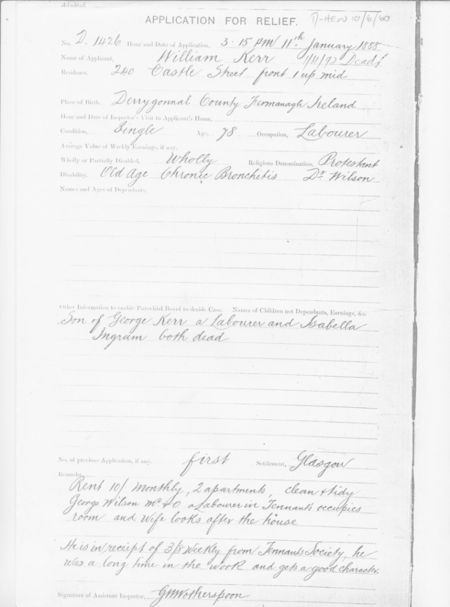 APPLICATION FOR RELIEF.
No. D. 1426 Hour and Date of Application, 3-15 pm 11th January 1888.
Name of Applicant, William Kerr
Residence, 240 Castle Street front 1 up mid
Place of Birth, Derrygonnal County Firmanagh Ireland
Hour and Date of Inspector's Visit to Applicant's Home,
Condition, Single Age, 78 Occupation, Labourer
Average Value of Weekly Earnings, if any,
Wholly or Partially Disabled, Wholly Religious Denomination, Protestent
Disability, Old Age Chronic Bronchitis Dr. Wilson
Names and Ages of Dependants.
Other Information to enable Parochial Board to decide Case. Names of Children not Dependants, Earnings, &c.
Son of George Kerr a Labourer and Isabella
Ingrum both dead
No. of previous Application, if any, first Settlement, Glasgow
Remarks,
Rent 10/ Monthly, 2 apartments, clean & tidy
George Wilson a Labourer in Tennants occupies
room and wife looks after the house
He is in receipt of weekly from Tennants Society, he
was a long time in the work and gets a good character.
Signature of Assistant Inspector, G Motherspoon